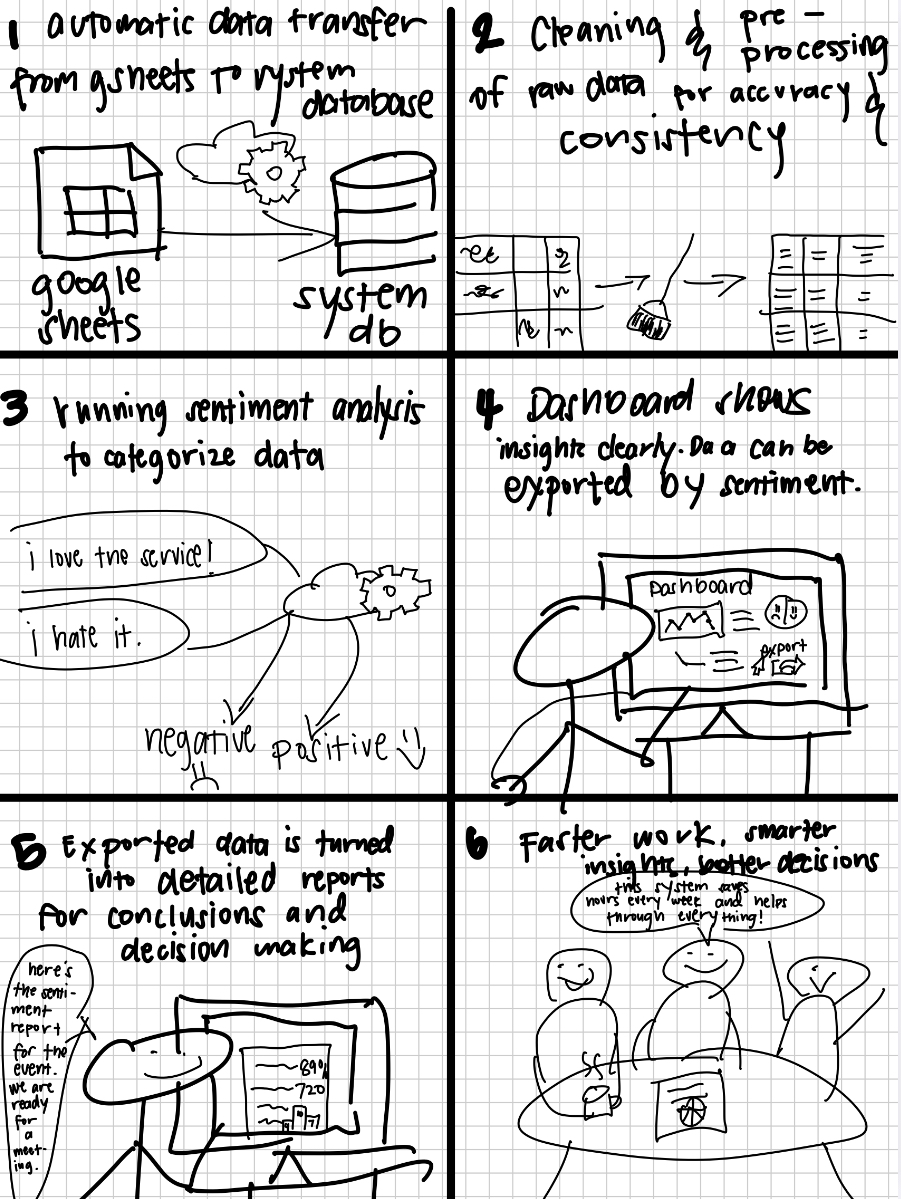 1 automatic data transfer
from gsheets to system
database
google
sheets
system
db
2 Cleaning & pre-
processing
of raw data for accuracy &
consistency
3 running sentiment analysis
to categorize data
i love the service!
i hate it.
negative
positive
4 Dashboard shows
insights clearly. Da a can be
exported by sentiment.
Dashboard
export
5 Exported data is turned
into detailed reports
for conclusions and
decision making
here's
the senti-
ment
report
for the
event.
we are
ready
for
a
meet-
ing.
89%
720
6 Faster work, smarter
insights, better decisions
this system saves
hours every week and helps
through everything!